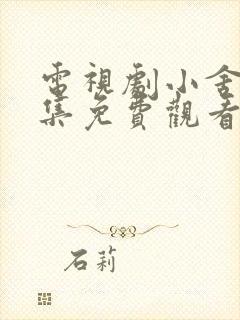 電視劇小舍
集免費觀看
石莉